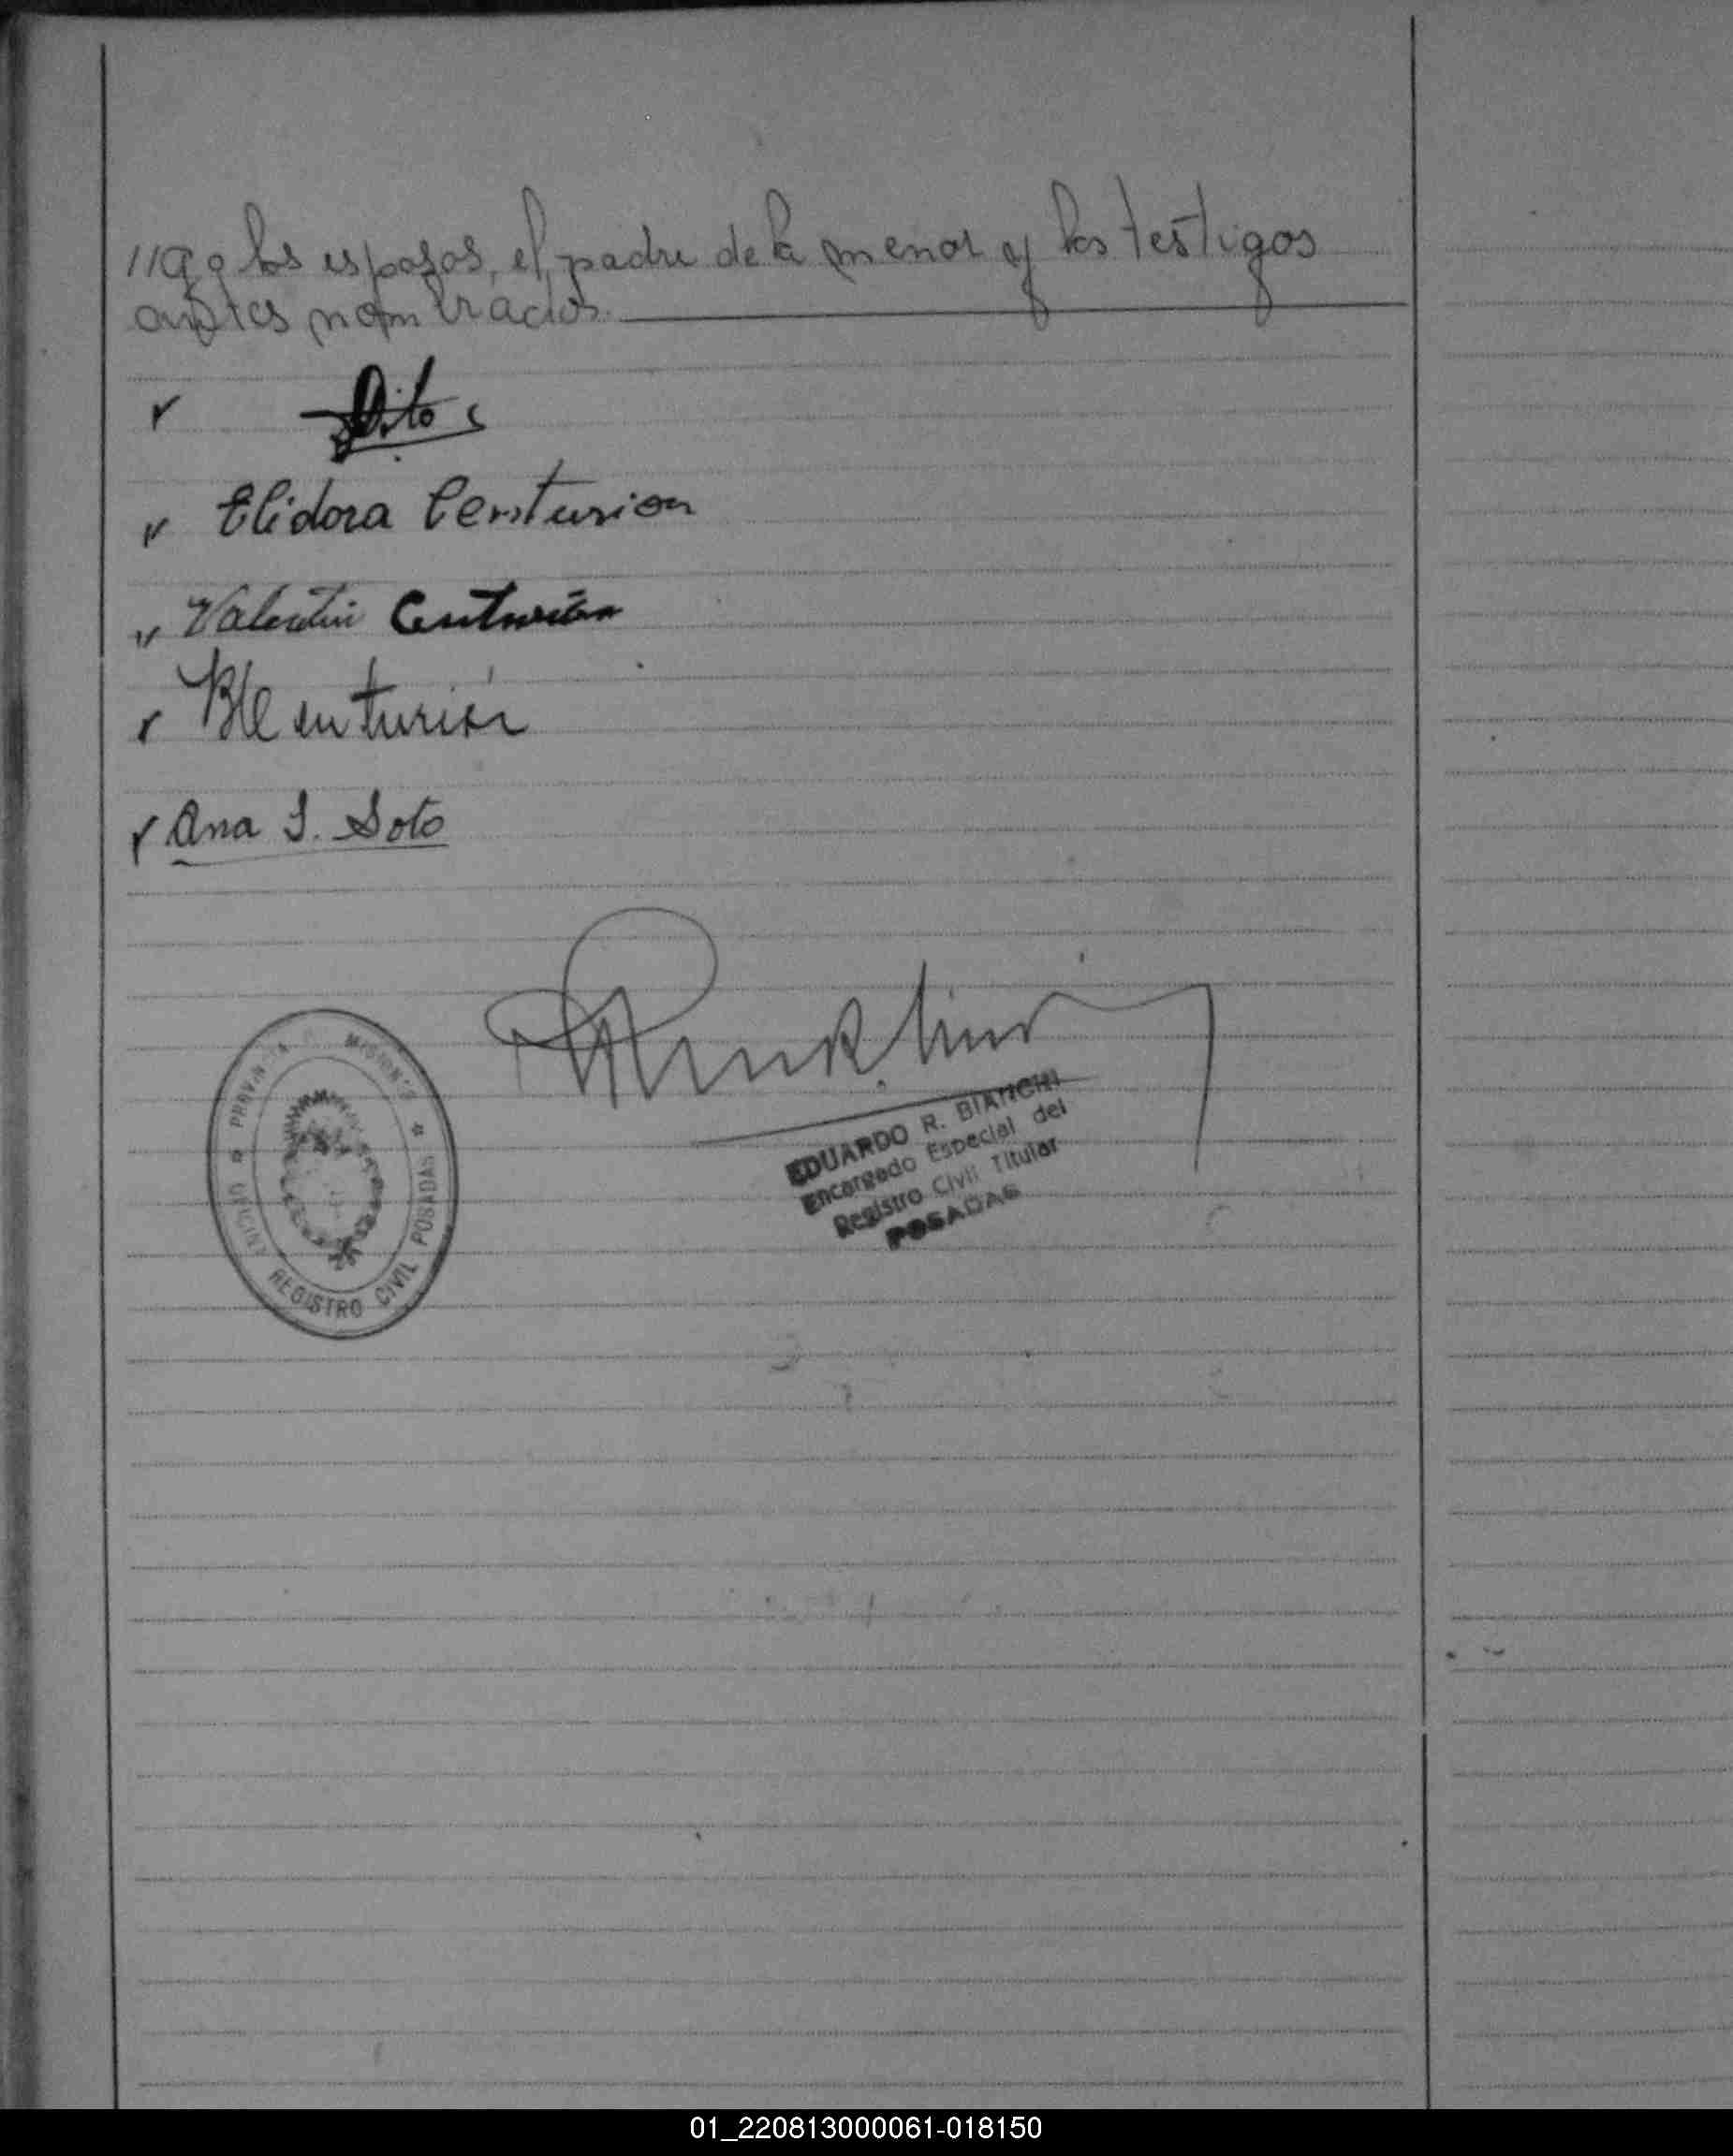 los esposos, el padre de la menor y los testigos
antes nombrados.
Elidora Centurion
Valentin Centurión
Centurión
Ana S. Soto
EDUARDO R. BIANCHI
Encargado Especial del
Registro Civil Titular
POSADAS
PROVINCIA MISIONES
OFICINA REGISTRO CIVIL POSADAS
01_220813000061-018150